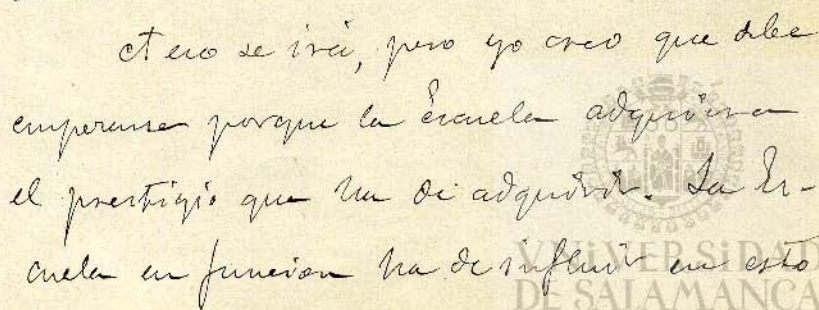 A eso se irá, pero yo creo que debe
empezarse porque la Escuela adquiera
el prestigio que ha de adquirir. La Es-
cuela en funcion ha de influir en esto
VNiVERSiDAD
DE SALAMANCA